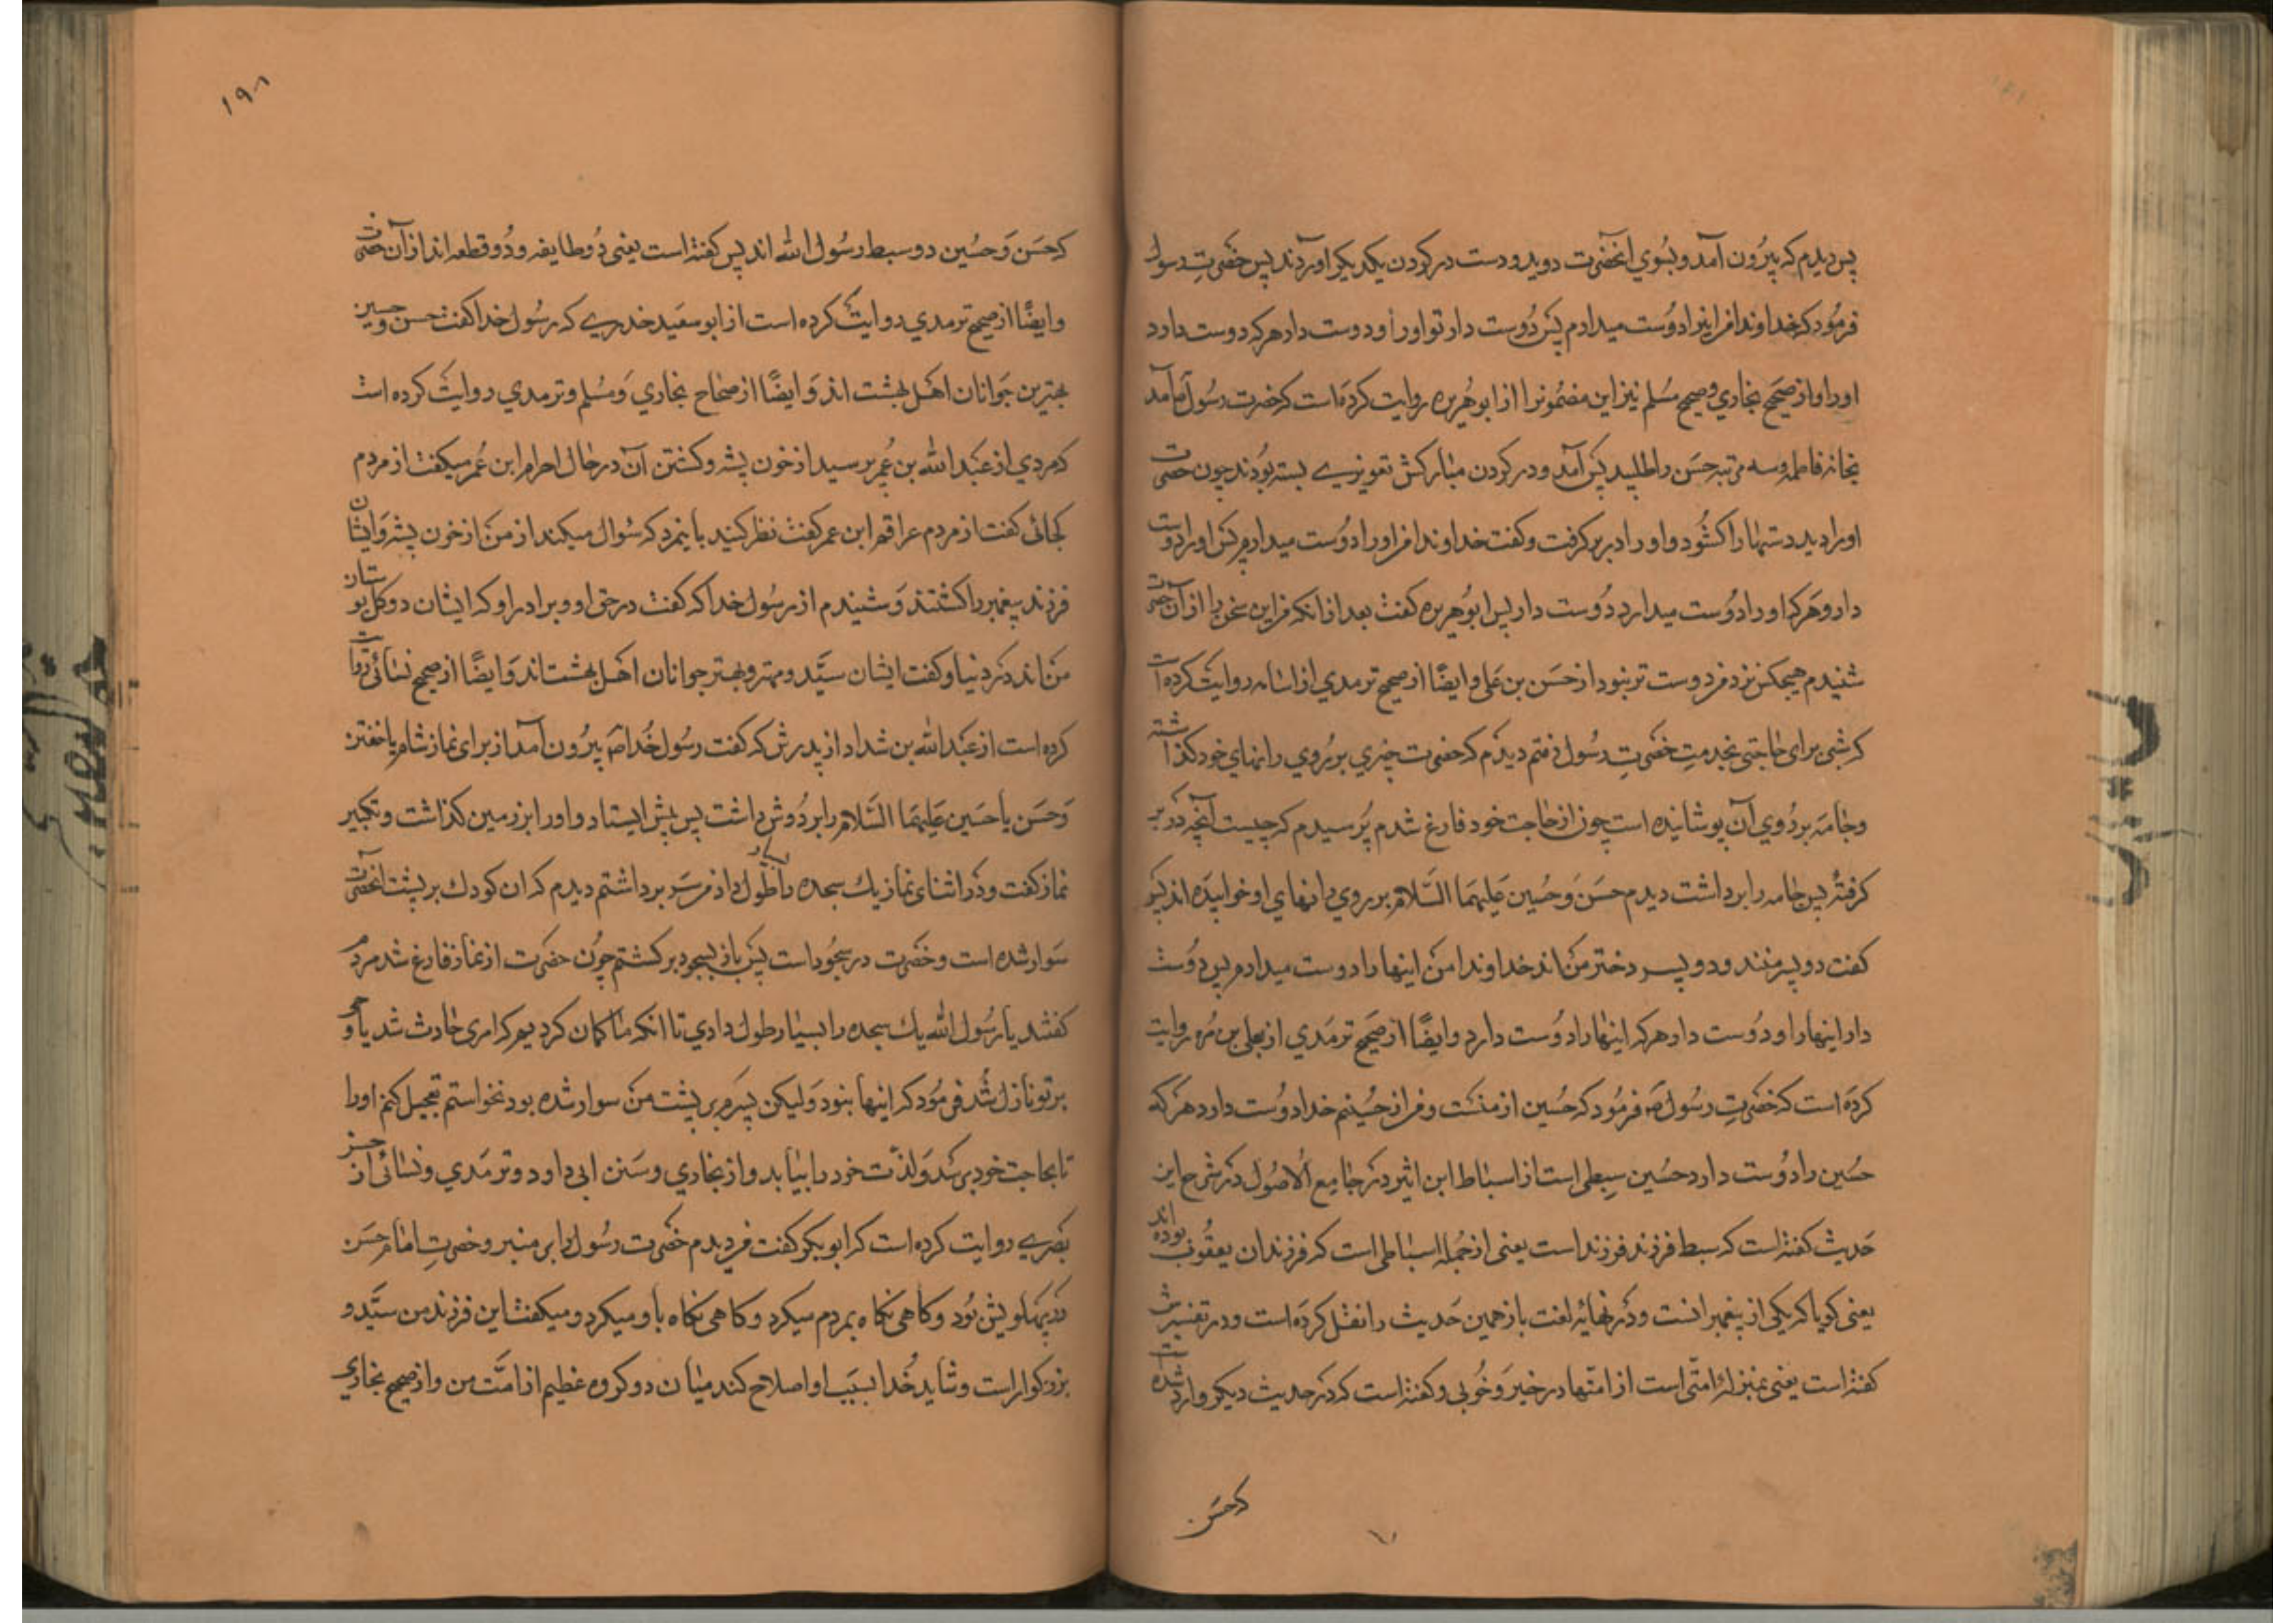 پس دیدم که بیرون آمد و بسوی انحضرت دوید و دست در کردن یکدیکر اوردند پس حضرت رسول
فرمود که خداوندا من اینرا دوست میدارم پس دوست دار تو اورا و دوست دار هرکه دوست دارد
اورا و از صحیح بخاری و صحیح مسلم نیز این مضمونرا از ابو هریره روایت کرده است که حضرت رسول ص آمد
بخانه فاطمه و سه مرتبه حسن را طلبید پس آمد و در کردن مبارکش تعویزی بسته بودند چون حضرت
اورا دید دستها را کشود و اورا در بر کرفت و کفت خداوندا من اورا دوست میدارم پس اورا دوست
دار و هرکه اورا دوست میدارد دوست دار پس ابو هریره کفت بعد از انکه من این سخن را از آن حضرت
شنیدم هیچکس نزد من دوست تر نبود از حسن بن علی و ایضًا از صحیح ترمدی از اسامه روایت کرده است
که شبی برای حاجتی بخدمت حضرت رسول رفتم دیدم که حضرت چیزی بر روی رانهای خود کذاشته
و جامه بر روی آن پوشانیده است چون از حاجت خود فارغ شدم پرسیدم که چیست آنچه در بر
کرفتهٔ پس جامه را برداشت دیدم حسن و حسین علیهما السلام بر روی رانهای او خوابیده اند پس
کفت دو پسر منند و دو پسر دختر من اند خداوندا من اینها را دوست میدارم پس دوست
دار اینها را و دوست دار هرکه اینها را دوست دارد و ایضًا از صحیح ترمدی از یعلی بن مره روایت
کرده است که حضرت رسول ص فرمود که حسین از منست و من از حسینم خدا دوست دارد هرکه
حسین را دوست دارد حسین سبطی است از اسباط ابن اثیر در جامع الاصول در شرح این
حدیث کفته است که سبط فرزند فرزند است یعنی از جمله اسباطی است که فرزندان یعقوب بوده اند
یعنی کویا که یکی از پیغمبرانست و در نهایه لغت باز همین حدیث را نقل کرده است و در تفسیرش
کفته است یعنی بمنزلهٔ امتی است از امتها در خیر و خوبی و کفته است که در حدیث دیکر وارد شده است
که حسن
۱۹۸
که حسن و حسین دو سبط رسول الله اند پس کفته است یعنی دو طایفه و دو قطعه اند از آن حضرت
و ایضًا از صحیح ترمدی روایت کرده است از ابو سعید خدری که رسول خدا کفت حسن و حسین
بهترین جوانان اهل بهشت اند و ایضًا از صحاح بخاری و مسلم و ترمدی روایت کرده است
که مردی از عبد الله بن عمر پرسید از خون پشه و کشتن آن در حال احرام ابن عمر میکفت از مردم
کجائی کفت از مردم عراقم ابن عمر کفت نظر کنید باینمرد که سُوال میکند از من از خون پشه و ایشان
فرزند پیغمبر را کشتند و شنیدم از رسول خدا که کفت در حق او و برادر او که ایشان دو کل بوستان
من اند در دنیا و کفت ایشان سید و مهتر و بهتر جوانان اهل بهشت اند و ایضًا از صحیح نسائی روایت
کرده است از عبد الله بن شداد از پدرش که کفت رسول خدا ص بیرون آمد از برای نماز شام یا خفتن
و حسن یا حسین علیهما السلام را بر دوش داشت پس پیش ایستاد و اورا بر زمین کذاشت و تکبیر
نماز کفت و در اثنای نماز یک سجده را بسیار طول داد من سر برداشتم دیدم که ان کودک بر پشت انحضرت
سوار شده است و حضرت در سجود است پس باز بسجود برکشتم چون حضرت از نماز فارغ شد مردم
کفتند یا رسول الله یک سجده را بسیار طول دادی تا انکه ما کمان کردیم که امری حادث شد یا وحی
بر تو نازل شد فرمود که اینها نبود و لیکن پسرم بر پشت من سوار شده بود نخواستم تعجیل کنم اورا
تا بحاجت خود برسد و لذت خود را بیابد و از بخاری و سنن ابی داود و ترمدی و نسائی از حسن
بصری روایت کرده است که ابو بکر کفت من دیدم حضرت رسول را بر منبر و حضرت امام حسن
در پهلویش بود و کاهی نکاه بمردم میکرد و کاهی نکاه باو میکرد و میکفت این فرزند من سید و
بزرکوار است و شاید خدا بسبب او اصلاح کند میان دو کروه عظیم از امت من و از صحیح بخاری